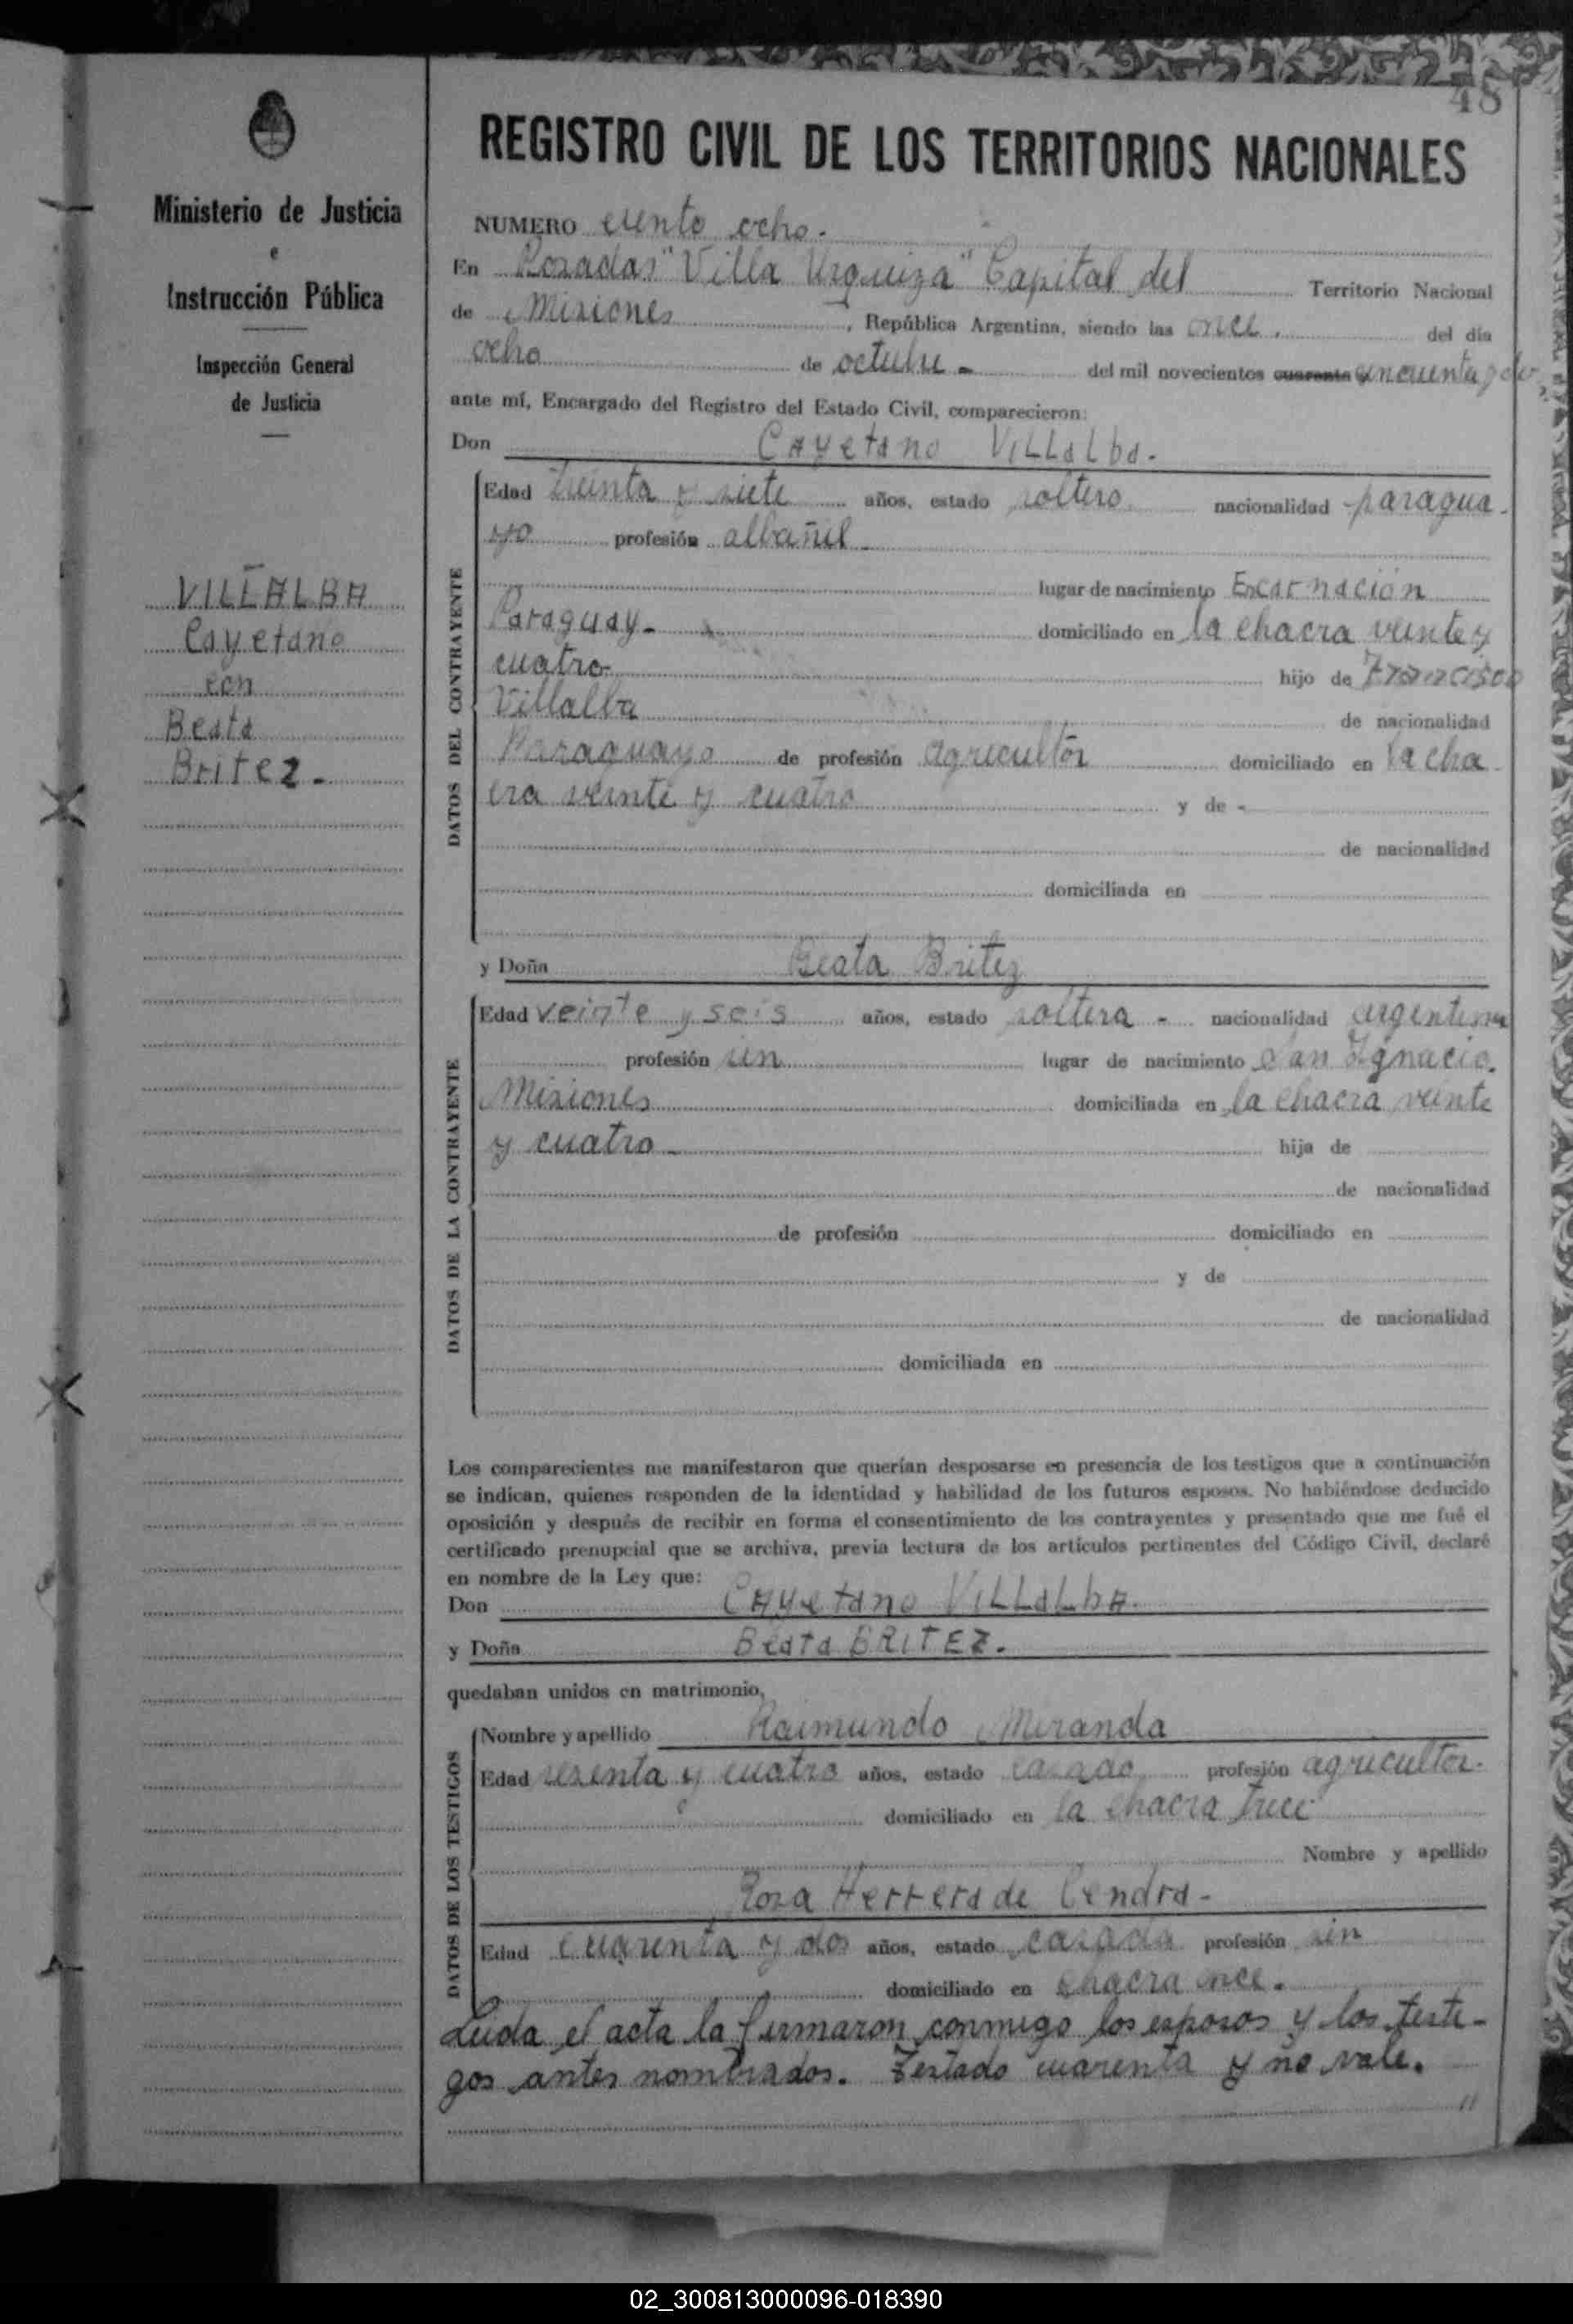 48
Ministerio de Justicia
e
Instrucción Pública
Inspección General
de Justicia
VILLALBA
Cayetano
con
Beata
Britez.
REGISTRO CIVIL DE LOS TERRITORIOS NACIONALES
NUMERO ciento ocho.
En Posadas "Villa Urquiza" Capital del Territorio Nacional
de Misiones, República Argentina, siendo las once. del día
ocho de octubre - del mil novecientos cuarenta cincuenta y
ante mí, Encargado del Registro del Estado Civil, comparecieron:
Don Cayetano Villalba.
DATOS DEL CONTRAYENTE
Edad treinta y siete años, estado soltero nacionalidad paragua-
yo profesión albañil
lugar de nacimiento Encarnación
Paraguay- domiciliado en la chacra veinte y
cuatro- hijo de Francisco
Villalba de nacionalidad
Paraguayo de profesión agricultor domiciliado en la cha-
cra veinte y cuatro y de -
de nacionalidad
domiciliada en
y Doña Beata Britez
DATOS DE LA CONTRAYENTE
Edad veinte y seis años, estado soltera - nacionalidad argentina
profesión sin lugar de nacimiento San Ignacio.
Misiones domiciliada en la chacra veinte
y cuatro - hija de
de nacionalidad
de profesión domiciliado en
y de
de nacionalidad
domiciliada en
Los comparecientes me manifestaron que querían desposarse en presencia de los testigos que a continuación
se indican, quienes responden de la identidad y habilidad de los futuros esposos. No habiéndose deducido
oposición y después de recibir en forma el consentimiento de los contrayentes y presentado que me fué el
certificado prenupcial que se archiva, previa lectura de los artículos pertinentes del Código Civil, declaré
en nombre de la Ley que:
Don Cayetano Villalba.
y Doña Beata BRITEZ.
quedaban unidos en matrimonio,
DATOS DE LOS TESTIGOS
Nombre y apellido Raimundo Miranda
Edad sesenta y cuatro años, estado casado profesión agricultor.
domiciliado en la chacra trece
Nombre y apellido
Rosa Herrera de Cendra-
Edad cuarenta y dos años, estado casada profesión sin
domiciliado en chacra once.
Leida el acta la firmaron conmigo los esposos y los testi-
gos antes nombrados. Testado cuarenta y no vale.
02_300813000096-018390